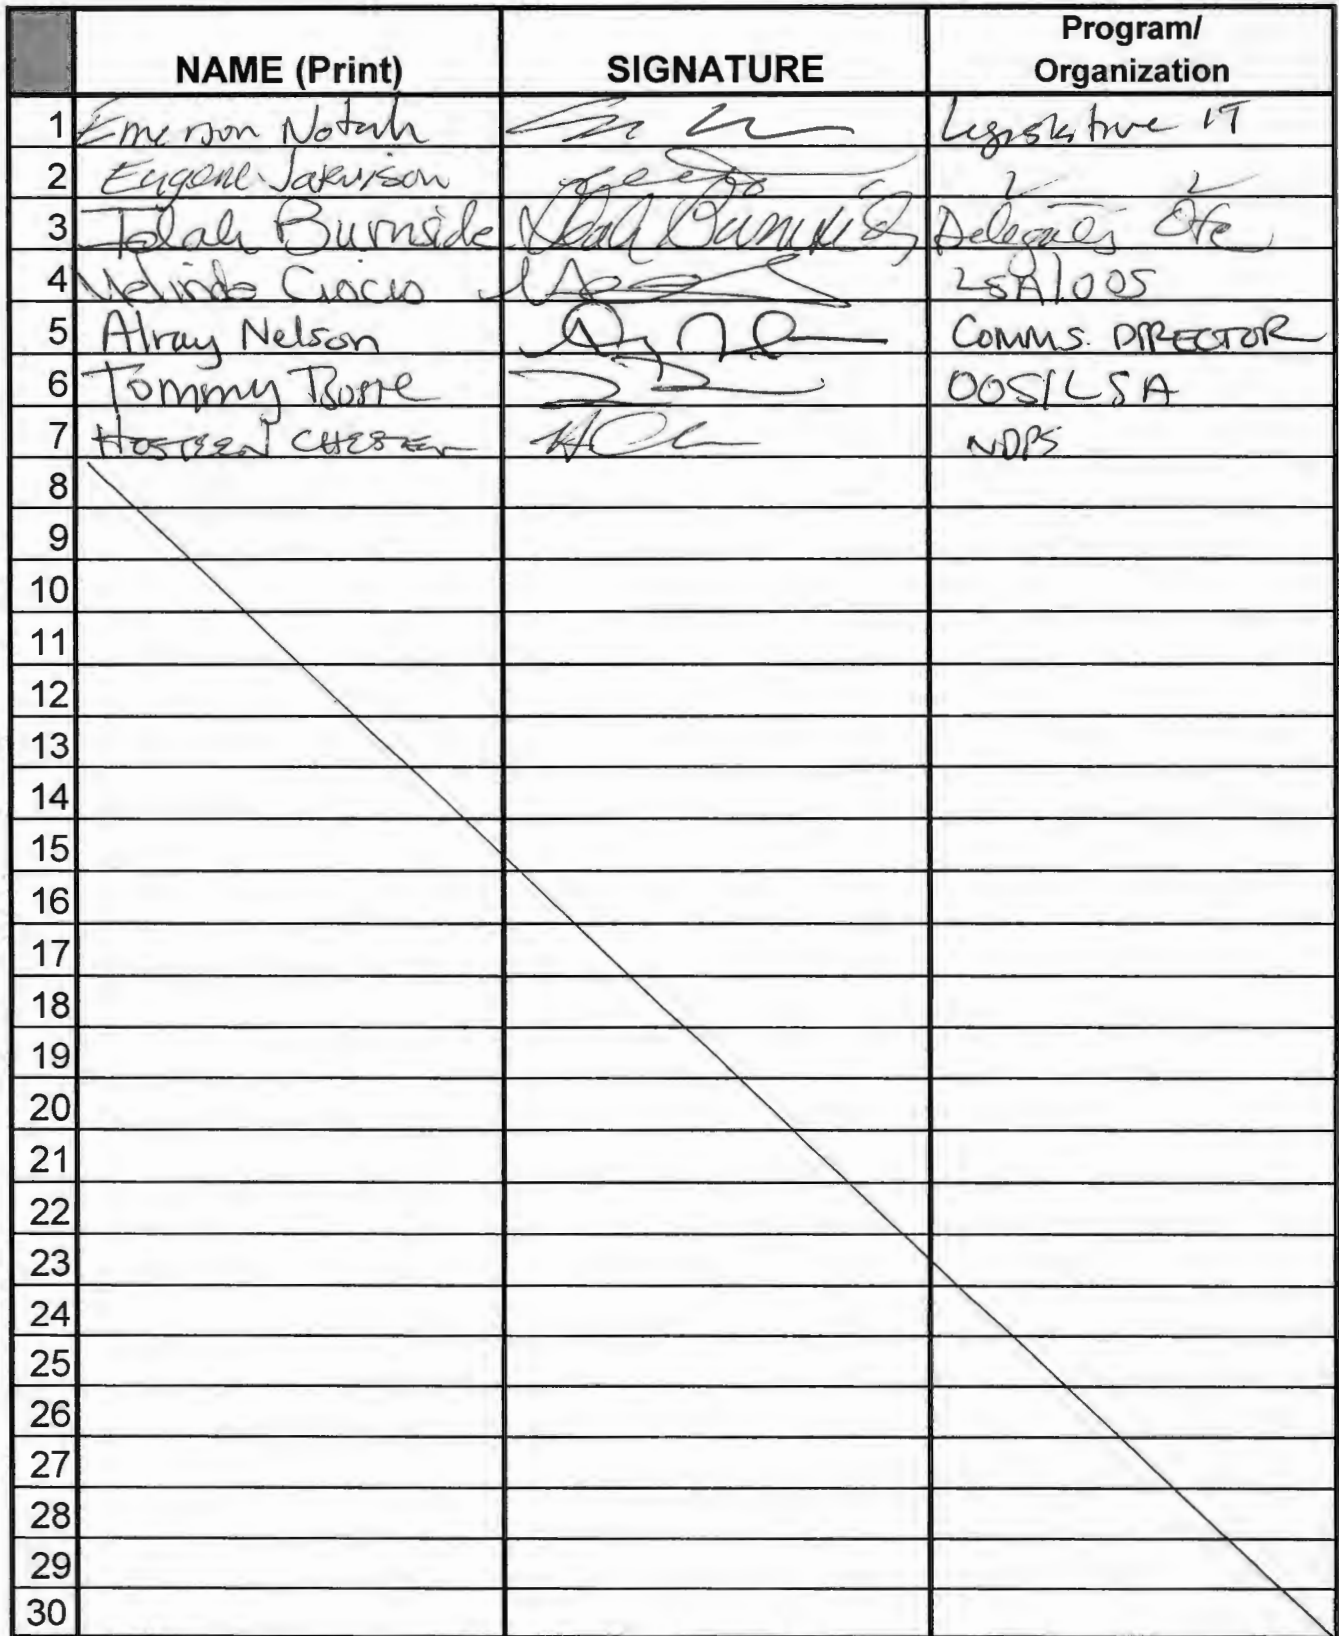 NAME (Print) SIGNATURE Program/
Organization
1 Emerson Notah Legislative IT
2 Eugene
3 Burnside Burnside Delegates Ofc
4 LSA/OOS
5 Alray Nelson COMMS. DIRECTOR
6 Tommy OOS/LSA
7 HOSTEEN CHESTER NDPS
8
9
10
11
12
13
14
15
16
17
18
19
20
21
22
23
24
25
26
27
28
29
30